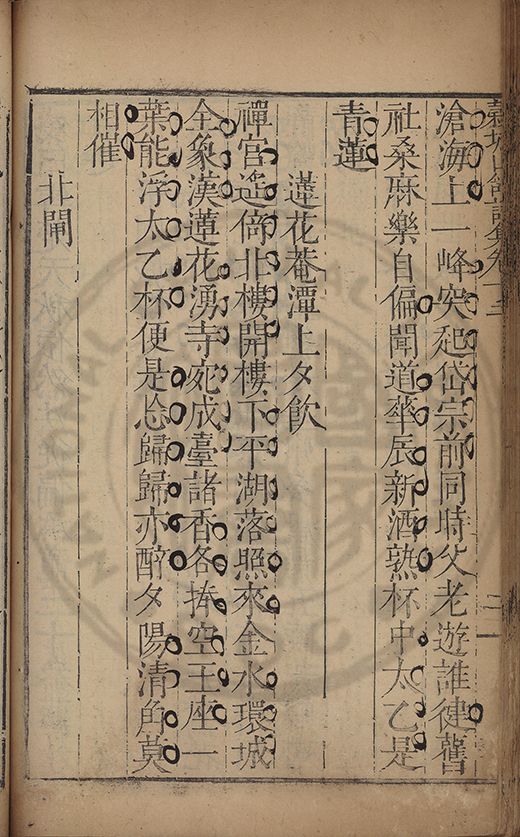 滄海上一峰突起岱宗前同時父老遊誰健舊
社桑麻樂自偏聞道華辰新酒熟杯中太乙是
青蓮
蓮花菴潭上夕飲
禪宫遥倚北樓開樓下平湖落照來金水環城
全象漢蓮花湧寺宛成臺諸香各捧空王座一
葉能浮太乙杯便是忘歸歸亦醉夕陽清角莫
相催
北閘